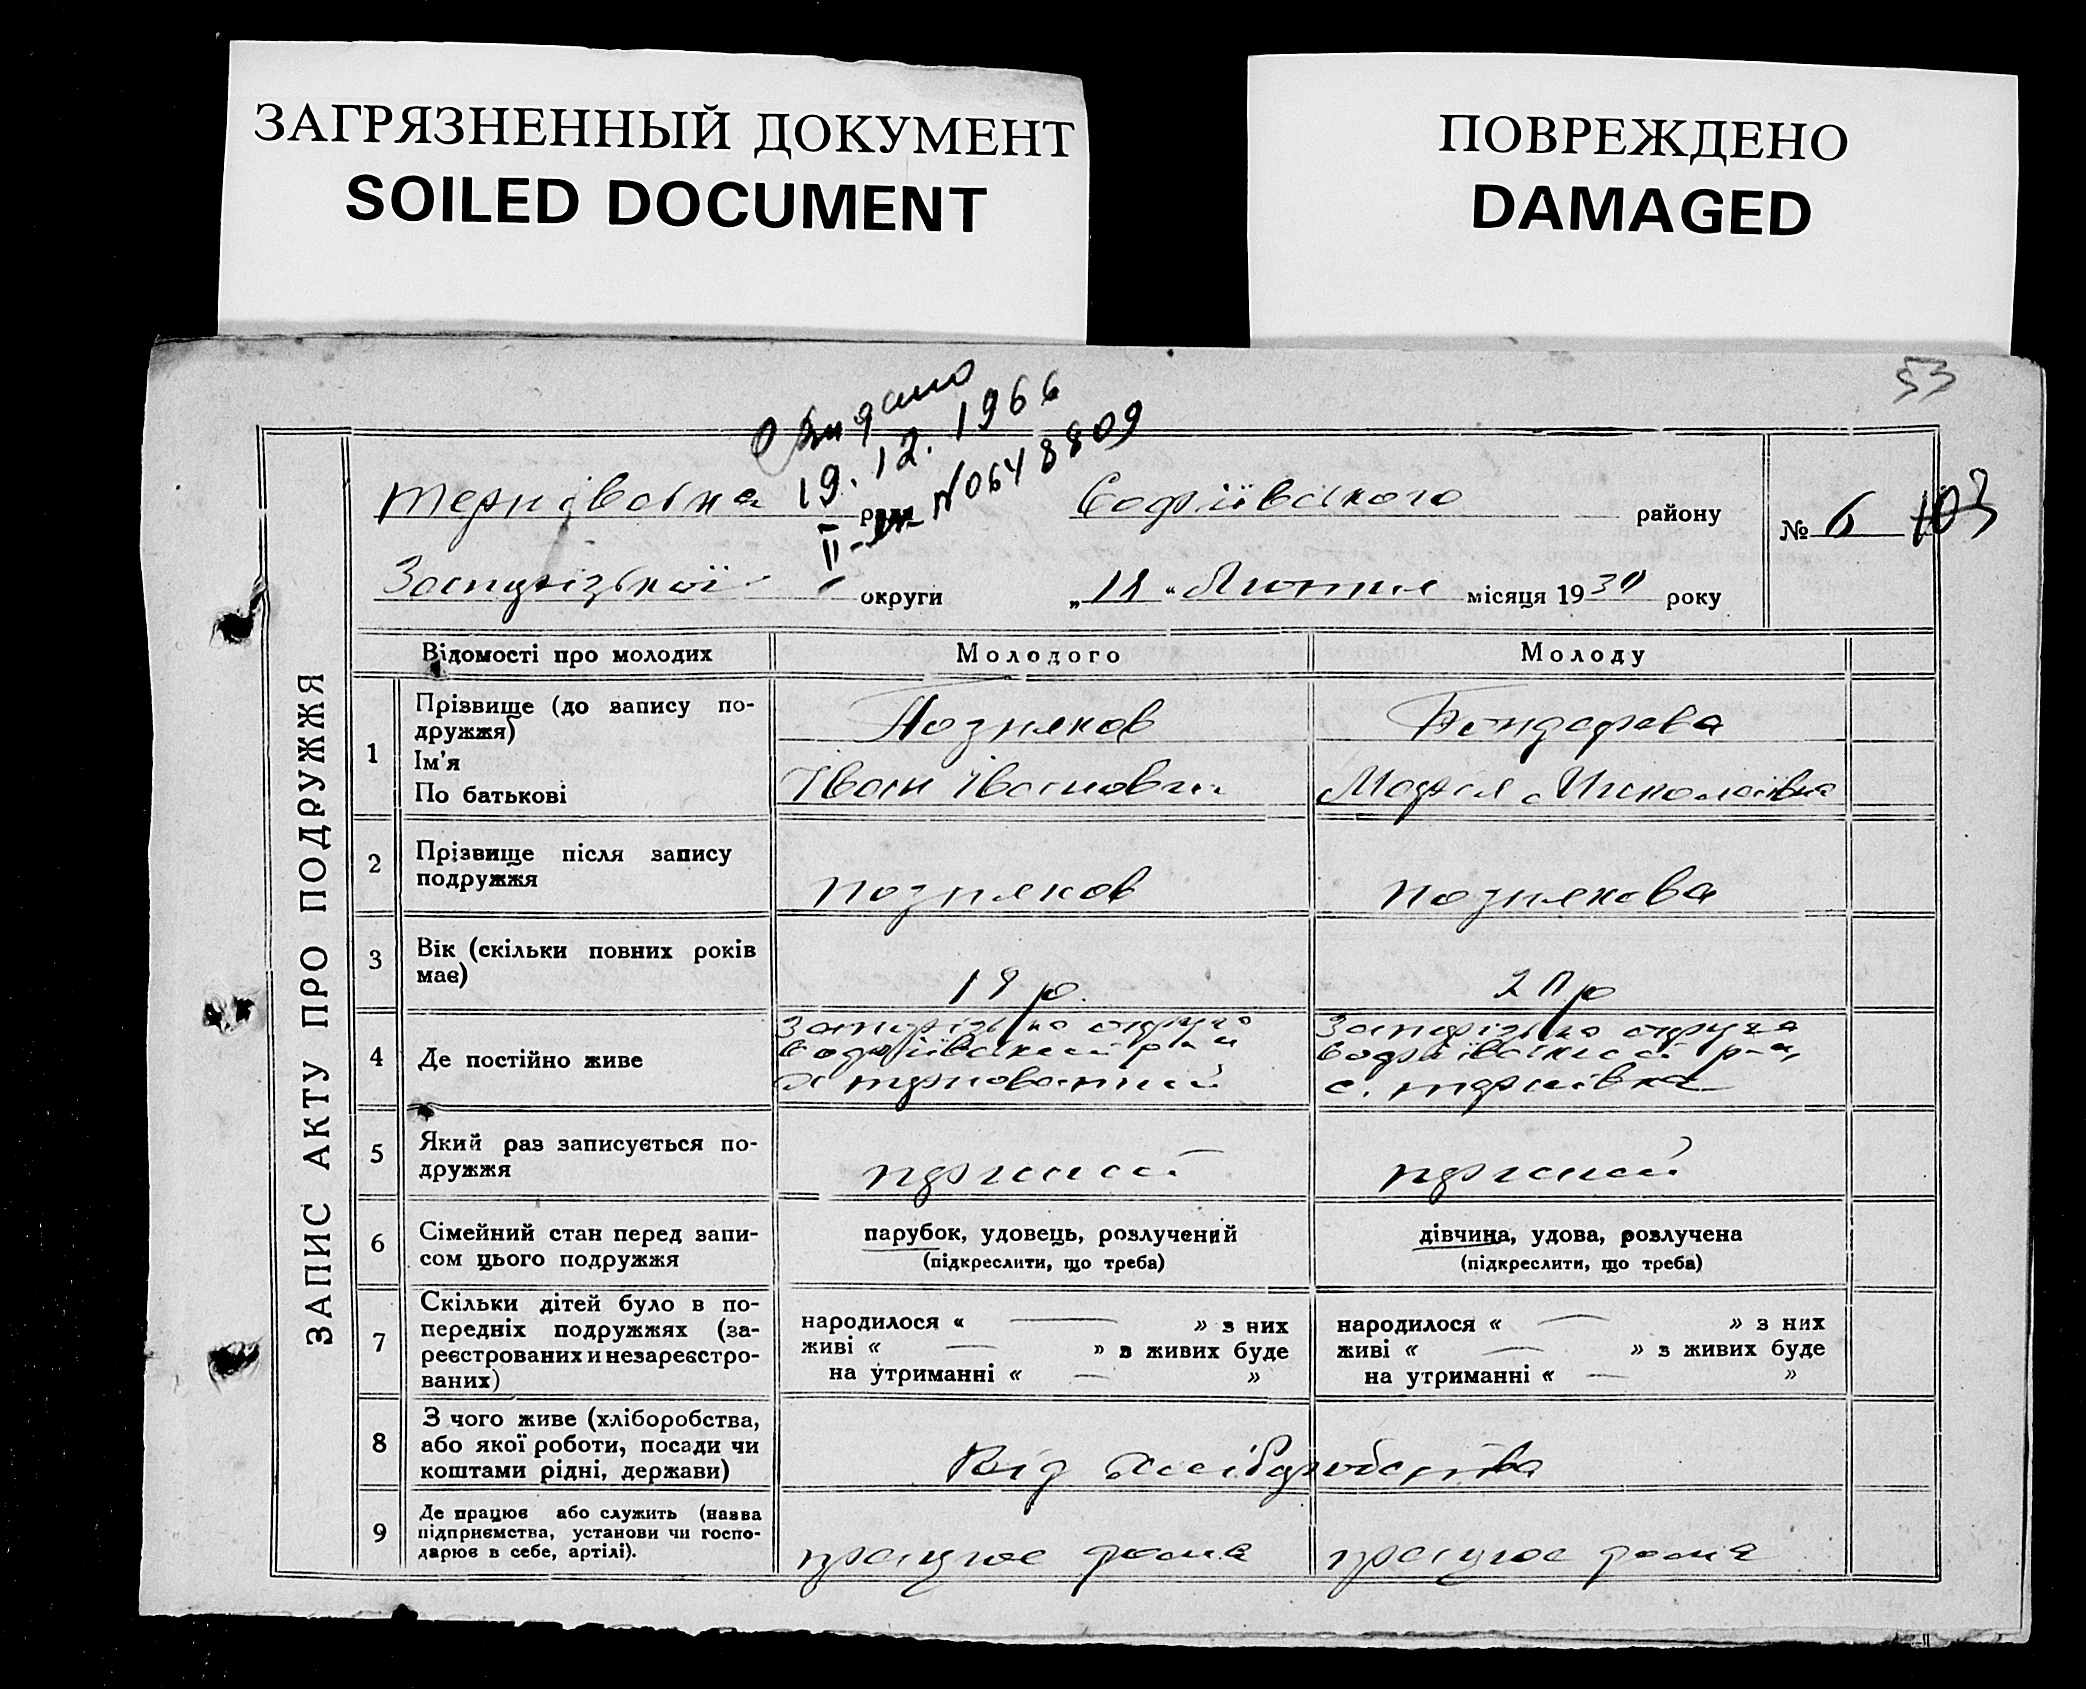 ЗАГРЯЗНЕННЫЙ ДОКУМЕНТ
SOILED DOCUMENT
ПОВРЕЖДЕНО
DAMAGED
53
19.12.1966
II- N0648809
Тернівська рада Софіївського району № 6 103
Запорізької округи „ “ Лютня місяця 1930 року
ЗАПИС АКТУ ПРО ПОДРУЖЖЯ
Відомості про молодих Молодого Молоду
1 Прізвище (до запису по-
дружжя)
Позняков Бондарева
Ім'я
По батькові
Іван Іванович Марія Миколаївна
2 Прізвище після запису
подружжя
Позняков Познякова
3 Вік (скільки повних років
має)
19 р. 20 р
4 Де постійно живе
Запорізька округа Запорізька округа
Софіївський р-н Софіївський р-н
х Терноватий с. Тернівка
5 Який раз записується по-
дружжя
перший перший
6 Сімейний стан перед запи-
сом цього подружжя
парубок, удовець, розлучений дівчина, удова, розлучена
(підкреслити, що треба) (підкреслити, що треба)
7 Скільки дітей було в по-
передніх подружжях (за-
реєстрованих и незареєстро-
ваних)
народилося « — » з них народилося « — » з них
живі « — » в живих буде живі « — » з живих буде
на утриманні « — » на утриманні « — »
8 З чого живе (хліборобства,
або якої роботи, посади чи
коштами рідні, держави)
Від хліборобства
9 Де працює або служить (назва
підприємства, установи чи госпо-
дарює в себе, артілі).
працює дома працює дома